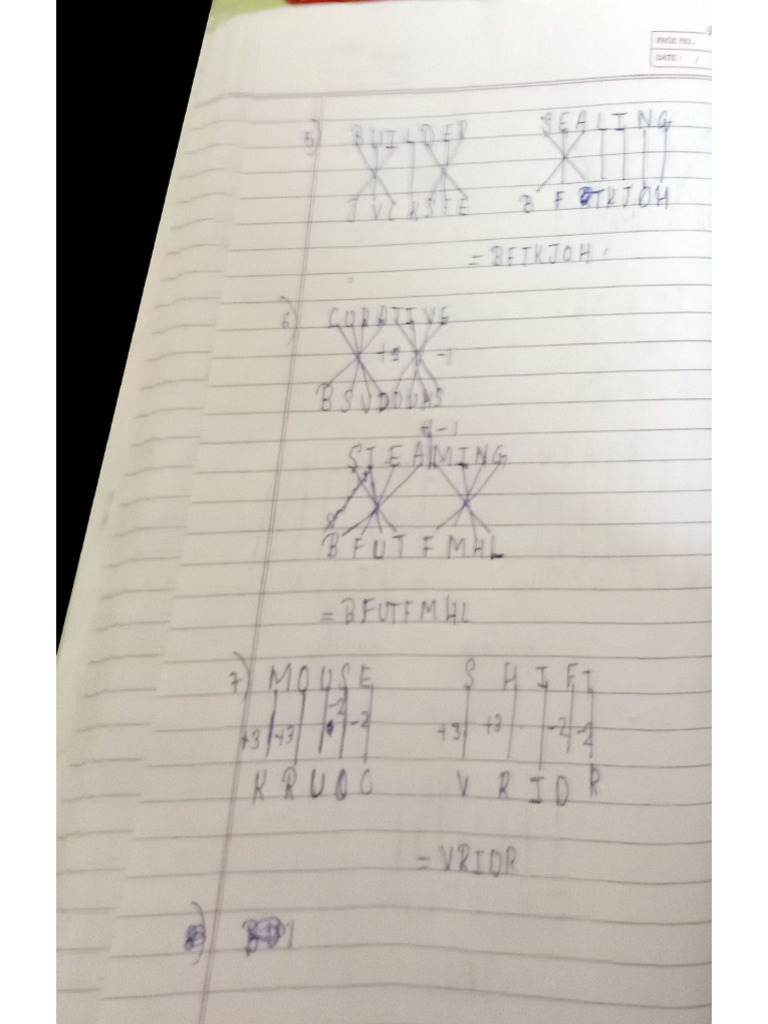 PAGE NO.:
DATE: /
5) BUILDER SEALING
JVCKSFE B F TKJOH
= BFTKJOH.
6) CORATIVE
+1 -1
B S V D D U H S
-1
STEAMING
B F U T F M H L
= BFUTFMHL
7) MOUSE S H I F T
+3 +3 -2 -2 +3 +3 -2 -2
K R U O C V R I D R
= VRIDR
8)